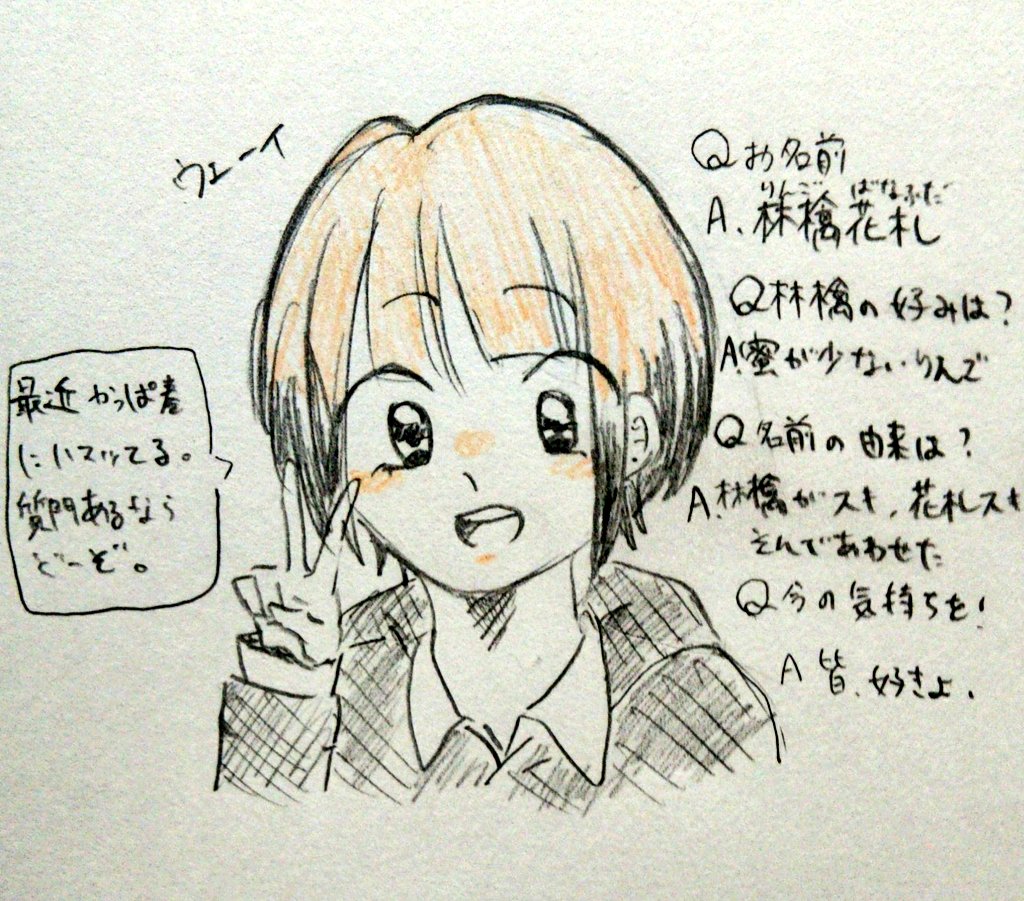 ウェーイ
最近かっぱ巻
にハマッてる。
質問あるなら
どーぞ。
Qお名前
りんご ばなふだ
A、林檎花札
Q林檎の好みは?
A、蜜が少ないりんご
Q名前の由来は?
A、林檎がスキ、花札スキ
そんであわせた
Q今の気持ちを!
A 皆、好きよ、